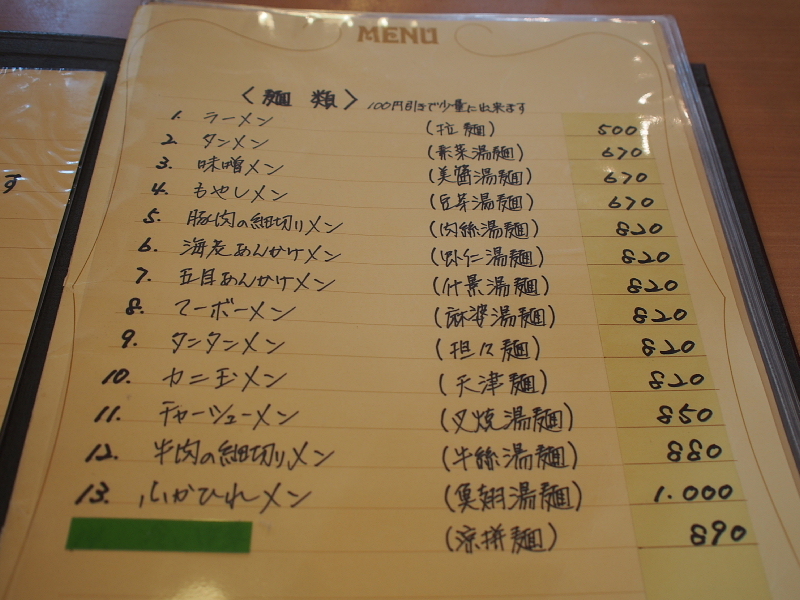 MENU
〈麺 類〉 100円引きで少量に出来ます
1. ラーメン (拉麺) 500
2. タンメン (素菜湯麺) 670
3. 味噌メン (美醤湯麺) 670
4. もやしメン (豆芽湯麺) 670
5. 豚肉の細切りメン (肉絲湯麺) 820
6. 海老あんかけメン (虾仁湯麺) 820
7. 五目あんかけメン (什景湯麺) 820
8. マーボーメン (麻婆湯麺) 820
9. タンタンメン (担々麺) 820
10. カニ玉メン (天津麺) 820
11. チャーシューメン (叉焼湯麺) 850
12. 牛肉の細切りメン (牛絲湯麺) 880
13. ふかひれメン (魚翅湯麺) 1.000
(涼拼麺) 890
す